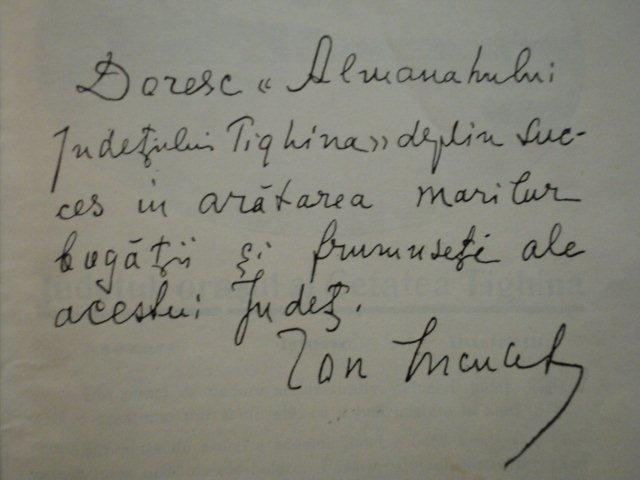 Doresc « Almanahului
Județului Tighina » deplin suc-
ces în arătarea marilor
bogății și frumuseți ale
acestui Județ.
Ion Inculeț
Cetatea Tighina